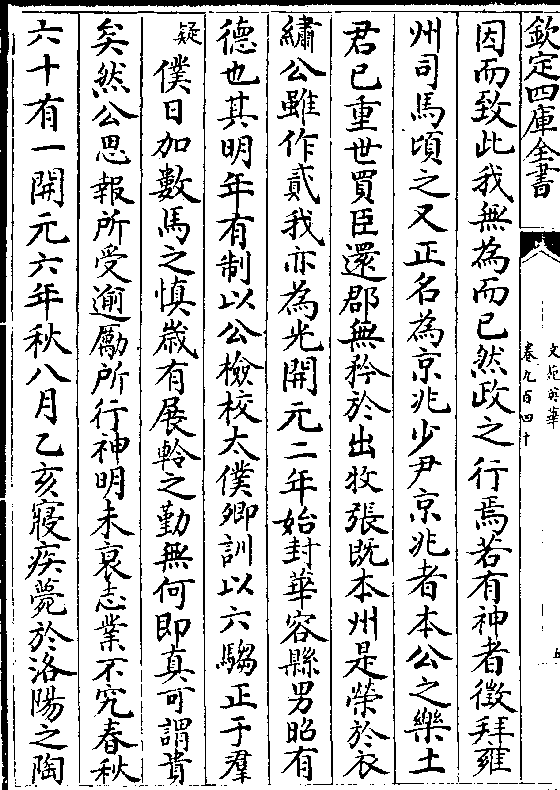 欽定四庫全書
文苑英華
卷九百四十
五
因而致此我無為而已然政之行焉若有神者徴拜雍
州司馬頃之又正名為京兆少尹京兆者本公之樂土
君已重世買臣還郡無矜於出牧張既本州是榮於衣
繡公雖作貳我亦為光開元二年始封華容縣男昭有
德也其明年有制以公檢校太僕卿訓以六騶正于羣
疑
僕日加數馬之慎歳有展軨之勤無何即真可謂貴
矣然公思報所受逾勵所行神明未衰志業不究春秋
六十有一開元六年秋八月乙亥寢疾薨於洛陽之陶